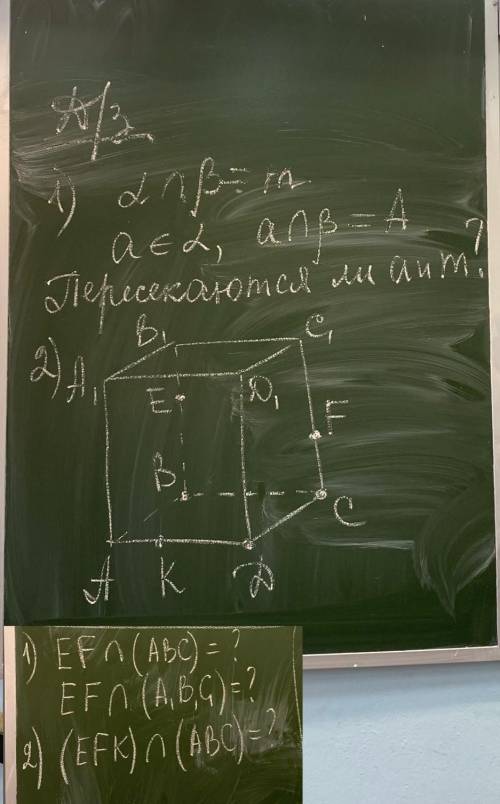 Д/З
1) α ∩ β = m
a ∈ α, a ∩ β = A
Пересекаются ли a и m?
2)
B₁ C₁
A₁ D₁
E F
B C
A K D
1) EF ∩ (ABC) = ?
EF ∩ (A₁B₁C₁) = ?
2) (EFK) ∩ (ABC) = ?